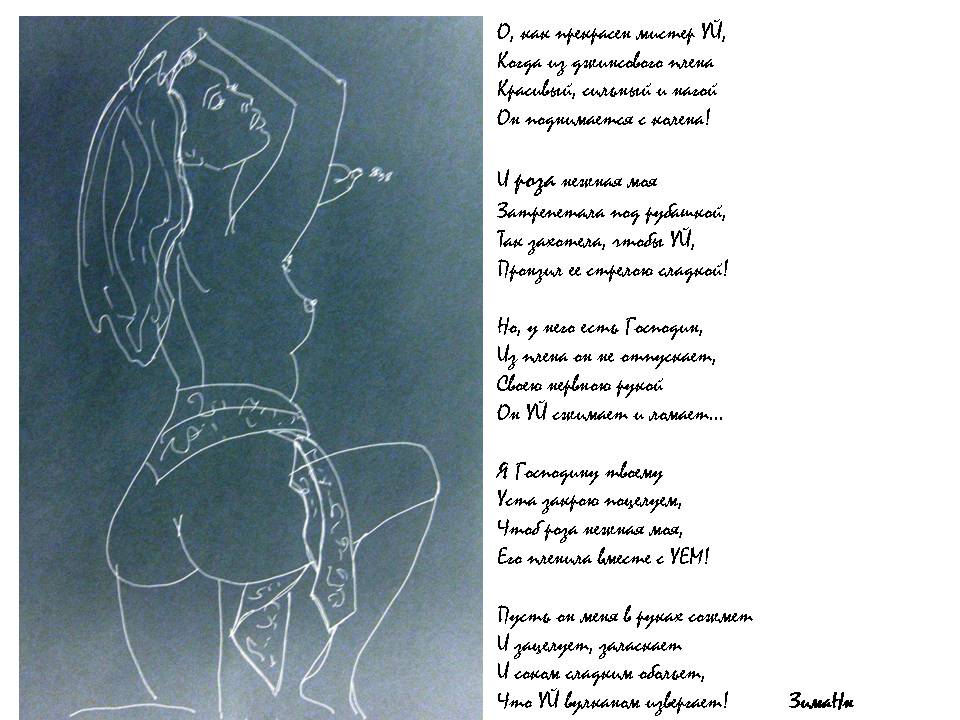 О, как прекрасен мистер УЙ,
Когда из джинсового плена
Красивый, сильный и нагой
Он поднимается с колена!
И роза нежная моя
Затрепетала под рубашкой,
Так захотела, чтобы УЙ,
Пронзил ее стрелою сладкой!
Но, у него есть Господин,
Из плена он не отпускает,
Своею нервною рукой
Он УЙ сжимает и ломает...
Я Господину твоему
Уста закрою поцелуем,
Чтоб роза нежная моя,
Его пленила вместе с УЕМ!
Пусть он меня в руках сожмет
И зацелует, заласкает
И соком сладким обольет,
Что УЙ вулканом извергает!
ЗимаНи